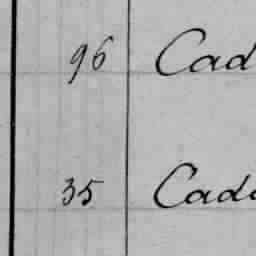 96 Cad
35 Cad